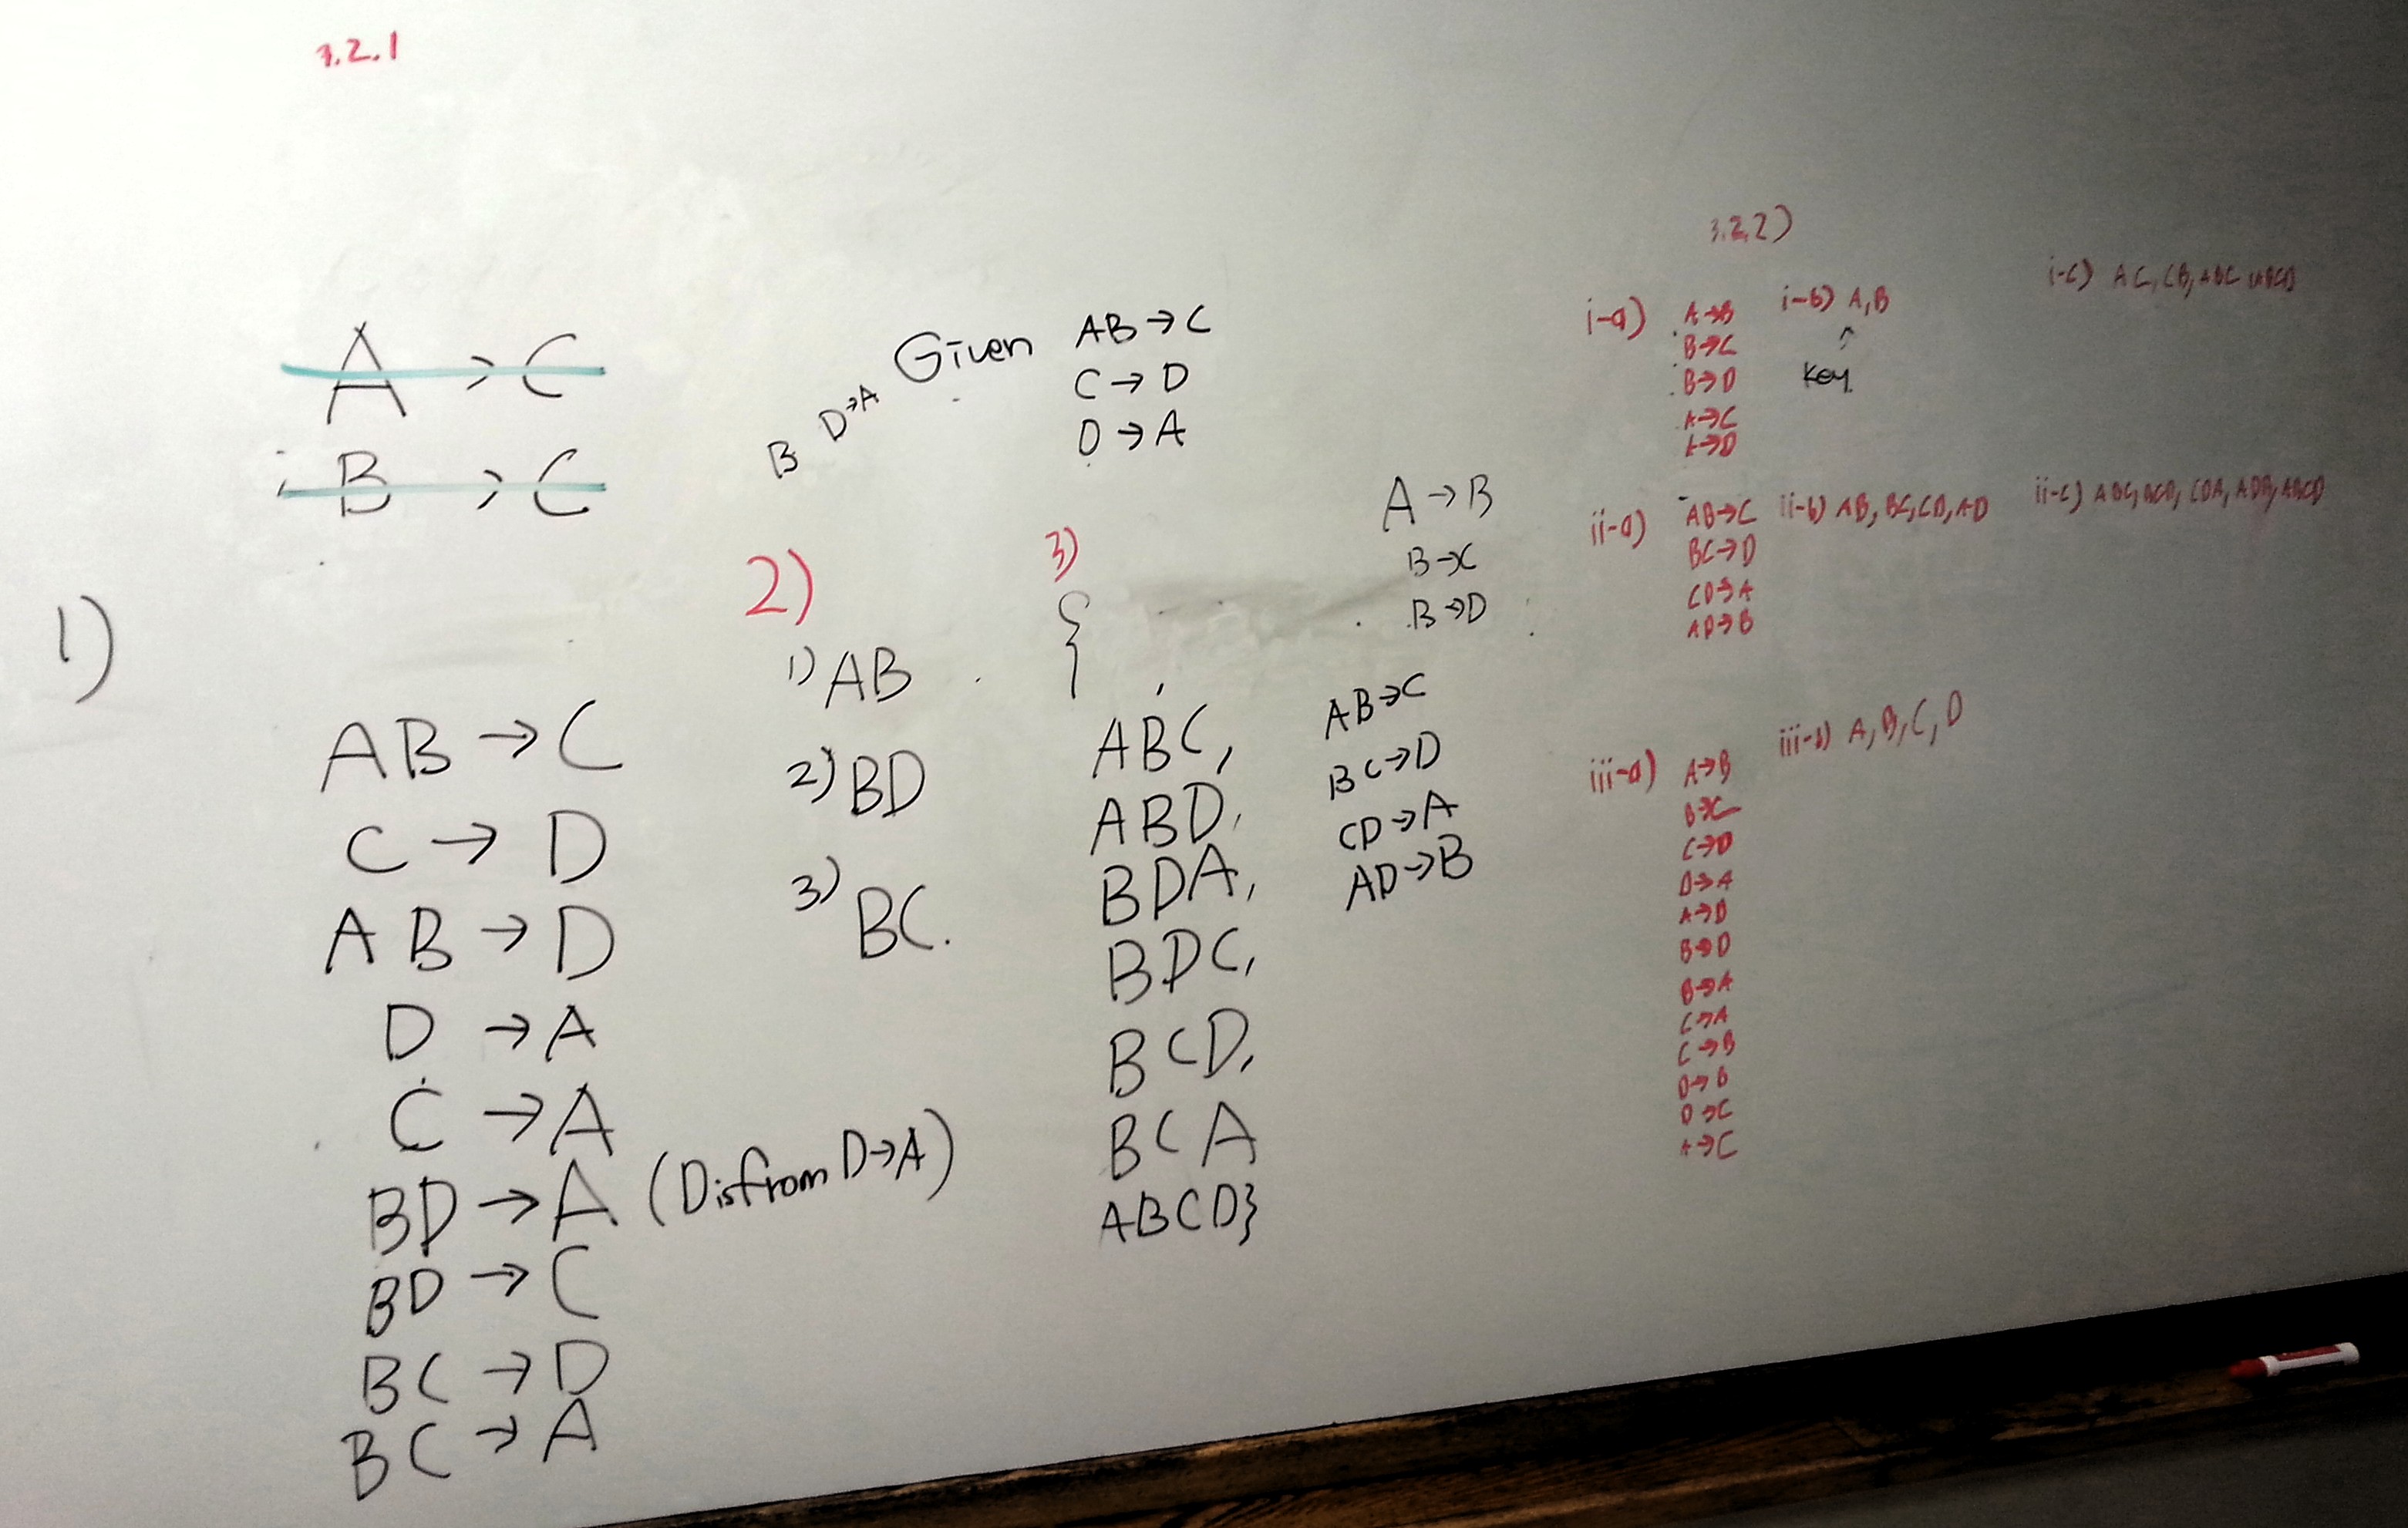 3.2.1
A → C
B → C
1)
AB → C
C → D
AB → D
D → A
C → A
BD → A (D is from D→A)
BD → C
BC → D
BC → A
B D→A
Given AB → C
C → D
D → A
2)
1) AB
2) BD
3) BC.
3)
{
ABC,
ABD,
BDA,
BDC,
BCD,
BCA
ABCD}
A → B
B → C
B → D
AB → C
BC → D
CD → A
AD → B
3.2.2)
i-a) A→B
B→C
B→D
A→C
A→D
i-b) A,B
↑
Key
i-c) AC, CB, ABC
ii-a) AB→C
BC→D
CD→A
AD→B
ii-b) AB, BC, CD, AD
ii-c) ABC, BCD, CDA, ADB, ABCD
iii-a) A→B
B→C
C→D
D→A
A→D
B→D
B→A
C→A
C→B
D→B
D→C
A→C
iii-b) A, B, C, D